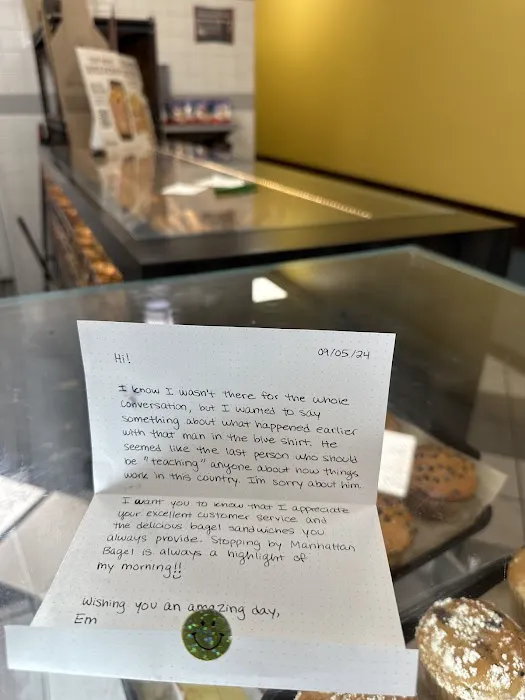 Hi!
09/05/24
I know I wasn't there for the whole
conversation, but I wanted to say
something about what happened earlier
with that man in the blue shirt. He
seemed like the last person who should
be "teaching" anyone about how things
work in this country. I'm sorry about him.
I want you to know that I appreciate
your excellent customer service and
the delicious bagel sandwiches you
always provide. Stopping by Manhattan
Bagel is always a highlight of
my morning!!
Wishing you an amazing day,
Em